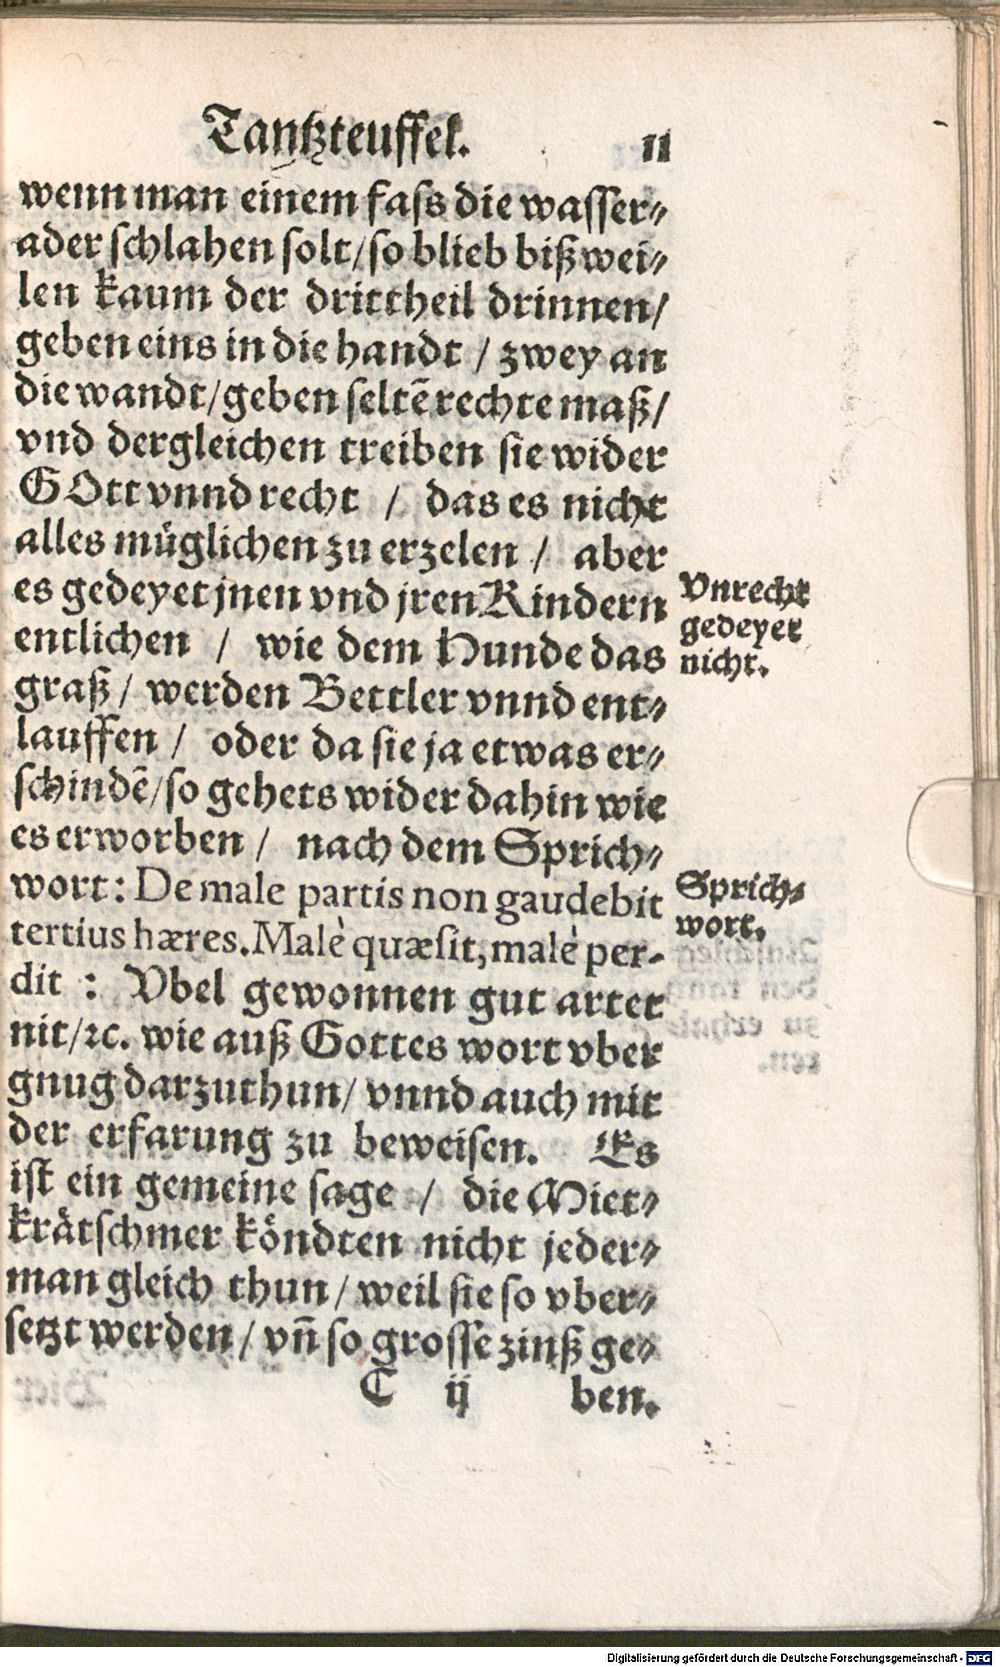 Tantzteuffel. 11
wenn man einem fass die wasser⸗
ader schlahen solt/so blieb bißwei⸗
len kaum der drittheil drinnen/
geben eins in die handt / zwey an
die wandt/geben seltẽ rechte maß/
vnd dergleichen treiben sie wider
GOtt vnnd recht / das es nicht
alles müglichen zu erzelen / aber
es gedeyet jnen vnd jren Kindern
entlichen / wie dem Hunde das
graß / werden Bettler vnnd ent⸗
lauffen / oder da sie ja etwas er⸗
schindẽ/so gehets wider dahin wie
es erworben / nach dem Sprich⸗
wort: De male partis non gaudebit
tertius hæres. Malè quæsit, malè per-
dit : Vbel gewonnen gut artet
nit/ꝛc. wie auß Gottes wort vber
gnug darzuthun/ vnnd auch mit
der erfarung zu beweisen. Es
ist ein gemeine sage / die Miet⸗
krätschmer köndten nicht jeder⸗
man gleich thun/ weil sie so vber⸗
setzt werden/ vñ so grosse zinß ge⸗
C ij ben.
Vnrecht
gedeyet
nicht.
Sprich⸗
wort.
Digitalisierung gefördert durch die Deutsche Forschungsgemeinschaft - DFG